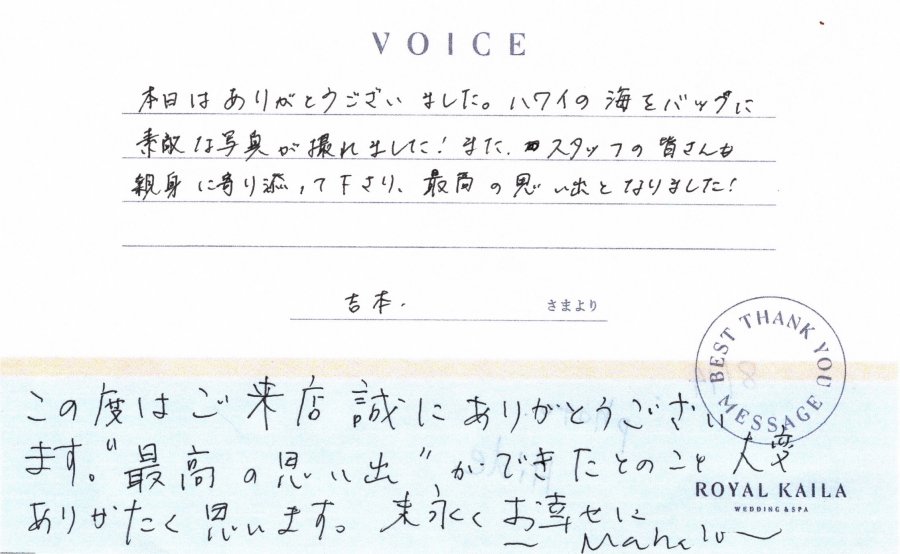 VOICE
本日はありがとうございました。ハワイの海をバッグに
素敵な写真が撮れました！また、スタッフの皆さんも
親身に寄り添って下さり、最高の思い出となりました！
吉本. さまより
BEST THANK YOU MESSAGE
この度はご来店誠にありがとうござい
ます。“最高の思い出”ができたとのこと 大変
ROYAL KAILA
WEDDING & SPA
ありがたく思います。末永くお幸せに
〜 Mahalo 〜